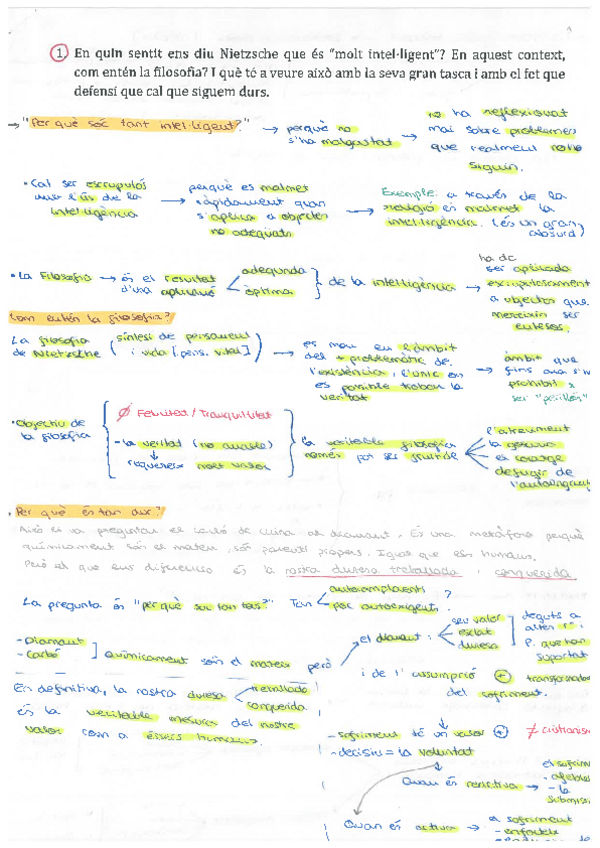 1 En quin sentit ens diu Nietzsche que és "molt intel·ligent"? En aquest context,
com entén la filosofia? I què té a veure això amb la seva gran tasca i amb el fet que
defensi que cal que siguem durs.
→ "Per què sóc tant intel·ligent?" → perquè no s'ha malgastat → no ha reflexionat mai sobre problemes que realment no ho siguin.
• Cal ser escrupulós amb l'ús de la intel·ligència → perquè es malmet ràpidament quan s'aplica a objectes no adequats → Exemple: a través de la religió es malmet la intel·ligència. (és un gran absurd)
• La Filosofia → és el resultat d'una aplicació adequada òptima } de la intel·ligència → ha de ser aplicada escrupulosament a objectes que mereixin ser estesos.
Com entén la filosofia?
La filosofia de Nietzsche (síntesi de pensament i vida [pens. vital]) → es mou en l'àmbit del + problemàtic de l'existència, l'únic en es possible trobar la veritat → àmbit que fins ara s'ha prohibit x ser "perillós"
• Objectiu de la filosofia { Ø Felicitat / Tranquil·litat
- la veritat (no amable)
↓
requereix molt valor } la veritable filosofia només pot ser fruit de l'atreviment
la gosadia
el coratge
defugir de l'autoengany
• Per què és tan dur?
Això es va preguntar el carbó de cuina al diamant. És una metàfora perquè
químicament són el mateix, són parents propers. Igual que els humans.
Però el que ens diferencia és la nostra duresa treballada i conquerida.
La pregunta és "per què sou tan tous?" Tan autocomplaents
poc autoexigents. ?
- Diamant
- Carbó ] Químicament són el mateix però el diamant: seu valor
esclat
duresa } deguts a
P. que han suportat
i de l'assumpció + transformador
del sofriment.
En definitiva, la nostra duresa treballada
conquerida
és la veritable mesura del nostre
valor com a éssers humans.
- sofriment té un valor + ≠ cristianis
- decisiu = la voluntat
Quan és reactiva → el sofrim
- afebleix
- la submissi
Quan és activa → el sofriment
- enforteix